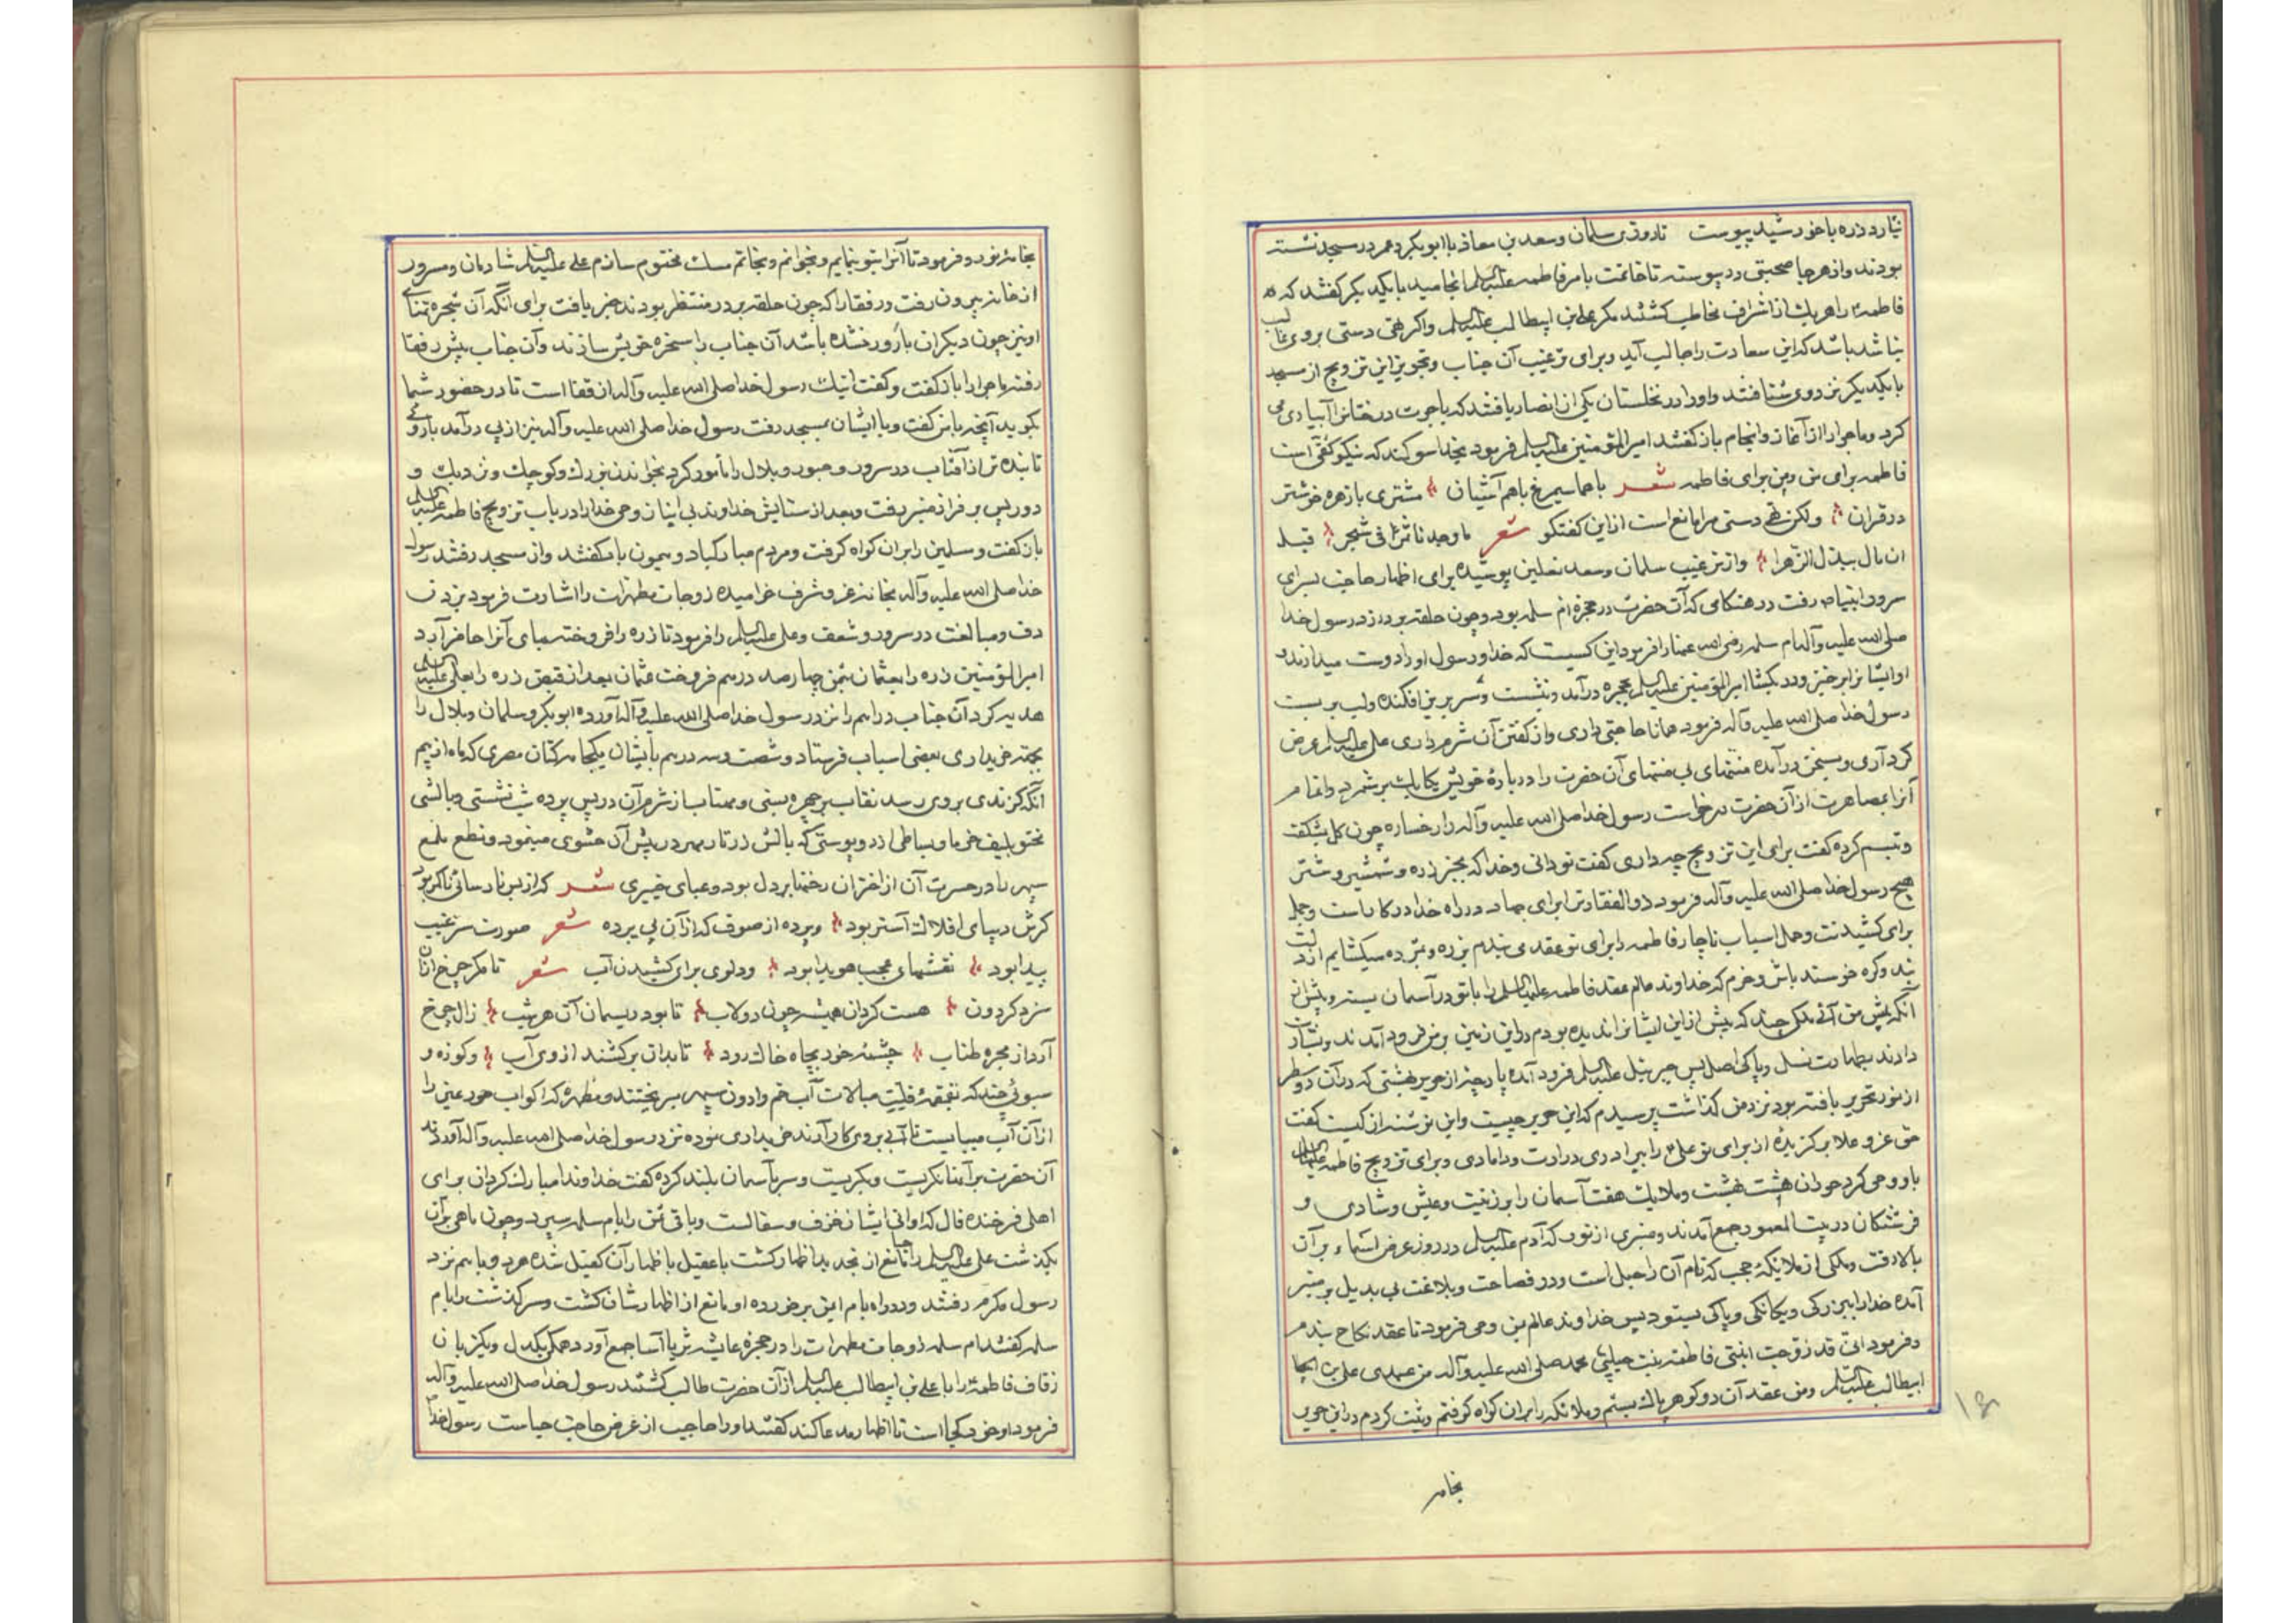 نیارد ذره با خورشید پیوست تا روزی سلمان و سعد بن معاذ با ابوبکر و عمر در مسجد نشسته
بودند و از هر جا صحبتی در پیوسته تا خاتمت بامر فاطمه علیها السلم انجامید با یکدیگر گفتند که
فاطمه را هر یک از اشراف مخاطب کشتند مکر علی بن ابیطالب علیه السلم و اگر تهی دستی بروی غالب
نباشد باشد که این سعادت را جالب آید و برای ترغیب آن جناب و تجویز این تزویج از مسجد
با یکدیگر نزد وی شتافتند و او را در نخلستان یکی از انصار یافتند که باجرت درختانرا آبیاری می
کرد و ماجرا را از آغاز و انجام باز گفتند امیرالمؤمنین علیه السلم فرمود بخدا سوگند که نیکو کفتی است
فاطمه برای من و من برای فاطمه شعر با هما سیمرغ با هم آشیان مشتری با زهره خوشتر
در قران ولکن تهی دستی مرا مانع است از این گفتگو شعر ما وجدنا شی شجر قبل
ان مال ببذل الزهرا و از ترغیب سلمان و سعد نعلین پوشیده برای اظهار حاجت بسرای
سرور انبیاء رفت در هنگامی که آن حضرت در حجره ام سلمه بود و چون حلقه بر در زد رسول خدا
صلی الله علیه و آله ام سلمه رضی الله عنها را فرمود این کسیست که خدا و رسول او را دوست میدارند و
او ایشانرا برخیز و در بکشا امیرالمؤمنین علیه السلم بحجره درآمد و نشست و سر بزیر افکنده و لب بر بست
رسول خدا صلی الله علیه و آله فرمود همانا حاجتی داری و از گفتن آن شرم داری علی علیه السلم عرض
کرد آری و بسخن درآمده منتهای بی منتهای آن حضرت را درباره خویش یکایک بر شمرد و اتمام
آنرا بمصاهرت از آن حضرت درخواست رسول خدا صلی الله علیه و آله را رخساره چون گل بشکفت
و تبسم کرده گفت برای این تزویج چه داری گفت تو دانی و خدا که بجز زره و شمشیر و شتر
هیچ رسول خدا صلی الله علیه و آله فرمود ذوالفقارت برای جهاد در راه خدا در کار است و جمل
برای کشیدنت و حمل اسباب ناچار فاطمه را برای تو عقد می بندم بزره و مژده میگشایم از دلت
بند و کره خرسند باش و خرم که خداوند عالم عقد فاطمه علیها السلم را با تو در آسمان بسته و پیش از
آنکه پیش من آئی ملکی چند که پیش از این ایشانرا ندیده بودم در این زمین بر من فرود آمدند و بشارت
دادند بطهارت نسل و پاکی اصل پس جبرئیل علیه السلم فرود آمده پارچه از حریر بهشتی که در آن دو سطر
از نور تحریر یافته بود نزد من گذاشت پرسیدم که این حریر چیست و این نوشته از کیست گفت
حق عز و علا برگزیده از برای تو علی را ببرادری و وزارت و دامادی و برای تزویج فاطمه علیها السلم
باو وحی کرد حوران هشت بهشت و ملایک هفت آسمان را بر زینت و عیش و شادی و
فرشتگان در بیت المعمور جمع آمدند و منبری از نور که آدم علیه السلم در روز عرض اسماء بر آن
بالا رفت و ملکی از ملائکه حجب که نام آن راحیل است و در فصاحت و بلاغت بی بدیل بر منبر
آمده خدا را ببزرگی و یکانگی و پاکی بستود پس خداوند عالم بمن وحی فرمود تا عقد نکاح بندم
و فرمود انی قد زوجت ابنتی فاطمة بنت حبیبی محمد صلی الله علیه و آله من عبدی علی بن ابی
ابیطالب علیه السلم و من عقد آن دو گوهر پاک بستم و ملائکه را بر آن گواه گرفتم و ثبت کردم در این حریر
بخامه
۱۶
بخامه نور و فرمود تا آنرا بتو بنمایم و بخوانم و بخاتم مسک مختوم سازم علی علیه السلم شادمان و مسرور
از خانه بیرون رفت و رفقا را که چون حلقه بر در منتظر بودند خبر یافت برای آنکه آن شجره تمنای
او نیز چون دیگران بارور نشده باشد آن جناب را سخره خویش سازند و آن جناب پیش رفقا
رفته ماجرا را باز گفت و گفت اینک رسول خدا صلی الله علیه و آله از قفا است تا در حضور شما
بگوید آنچه با من گفت و با ایشان بمسجد رفت رسول خدا صلی الله علیه و آله نیز از پی درآمد با روی
تابنده تر از آفتاب در سرور و حبور و بلال را مأمور کرد بخواندن بزرگ و کوچک و نزدیک و
دور پس بر فراز منبر رفت و بعد از ستایش خداوند بی انباز وحی خدا را در باب تزویج فاطمه علیها السلم
باز گفت و مسلمین را بر آن گواه گرفت و مردم مبارکباد و میمون باد گفتند و از مسجد رفتند رسول
خدا صلی الله علیه و آله بخانه عز و شرف خرامیده زوجات مطهرات را اشارت فرمود بزدن
دف و مبالغت در سرور و شعف و علی علیه السلم را فرمود تا زره را فروخته بهای آنرا حاضر آرد
امیرالمؤمنین زره را بعثمان بثمن چهارصد درهم فروخت عثمان بعد از قبض زره را بعلی علیه السلم
هدیه کرد آن جناب دراهم را نزد رسول خدا صلی الله علیه و آله آورده ابوبکر و سلمان و بلال را
بجهة خریداری بعضی اسباب فرستاد و شصت و سه درهم بایشان یکجامه کتان مصری که ماه از بیم
آنکه گزندی بروی رسد نقاب بر چهره بستی و مهتاب از شرم آن در پس پرده شب نشستی و بالشی
محشو بلیف خرما و بساطی از دو پوستی که بالش زرتار مهر در پیش آن حشوی مینمود و نطع ملمع
سپهر را در حسرت آن از اختران رخنها بر دل بود و عبای خیبری شعر که از بس نارسائی ناگزیر بود
گرش دیبای افلاک آستر بود و پرده از صوف که از آن پی پرده شعر صورت سر غیب
پیدا بود نقشهای عجب هویدا بود و دلوی برای کشیدن آب شعر تا مگر چرخ از آن
سزد گردون هست گردان همیشه چون دولاب تا بود ریسمان آن هر شب زال چرخ
آرد از مجره طناب چشمه خود بچاه خاک رود تا بدان برکشند از وی آب و کوزه و
سبوئی چند که
از آن آب میبایست تا آبی بروی کار آرند خریداری نموده نزد رسول خدا صلی الله علیه و آله آوردند
آن حضرت بر آنها نگریست و بگریست و سر بآسمان بلند کرده گفت خداوندا مبارک گردان برای
اهلی فرخنده فال که اوانی ایشان خزف و سفالست و باقی ثمن را بام سلمه سپرد و چون ماهی بر آن
بگذشت علی علیه السلم را حیا مانع از تجدید اظهار گشت با عقیل باظهار آن کفیل شده هر دو با هم نزد
رسول مکرم رفتند و در راه بام ایمن برخورده او مانع از اظهارشان گشت و سرگذشت را بام
سلمه گفتند ام سلمه زوجات مطهرات را در حجره عایشه ثریا آسا جمع آورد همگی یکدل و یکزبان
زفاف فاطمه را با علی بن ابیطالب علیه السلم از آن حضرت طالب گشتند رسول خدا صلی الله علیه و آله
فرمود او خود کجا است تا اظهار مدعا کند گفتند او را حاجب از عرض حاجت حیاست رسول خدا